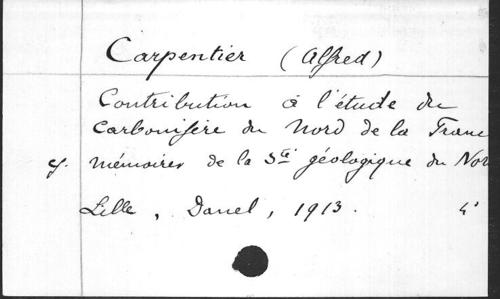 Carpentier (Alfred)
Contribution à l'étude du
Carbonifère du Nord de la Franc
cf. mémoires de la Sté géologique du Nor
Lille, Danel, 1913. 4°